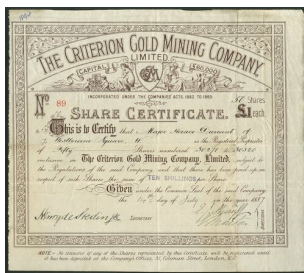 THE CRITERION GOLD MINING COMPANY,
LIMITED.
CAPITAL £60,000
INCORPORATED UNDER THE COMPANIES ACTS, 1862 TO 1883.
No 89 Shares
SHARE CERTIFICATE. £1 each
This is to Certify that Major Horace Durrant of
is the Registered Proprietor
of Fifty Shares numbered to
inclusive in The Criterion Gold Mining Company, Limited, subject to
the Regulations of the said Company, and that there has been paid up in
respect of each Share, the sum of TEN SHILLINGS per Share
Given under the Common Seal of the said Company
the day of July in the year 1887
Secretary
NOTE - No transfer of any of the Shares represented by this Certificate will be registered until
it has been deposited at the Company's Offices, Coleman Street, London, E.C.